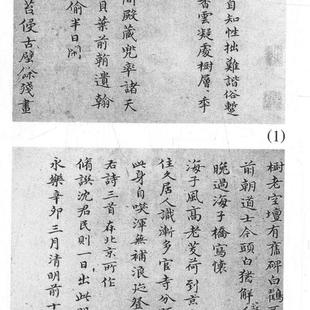 自知性拙難諧俗暫
香雲凝處樹層〻季
閣殿藏兜率諸天
貝葉前朝遺翰
偷半日閒
苔侵古壁餘殘畫
(1)
樹老空壇有舊碑白鶴
前朝道士今頭白猶解
晚過海子橋寫懷
海子風高老芰荷到京
住久居人識漸多官寺分
此身自嘆渾無補浪迹登
右詩三首在北京所作
脩訊沈君民則一日出此
永樂辛卯三月清明前十